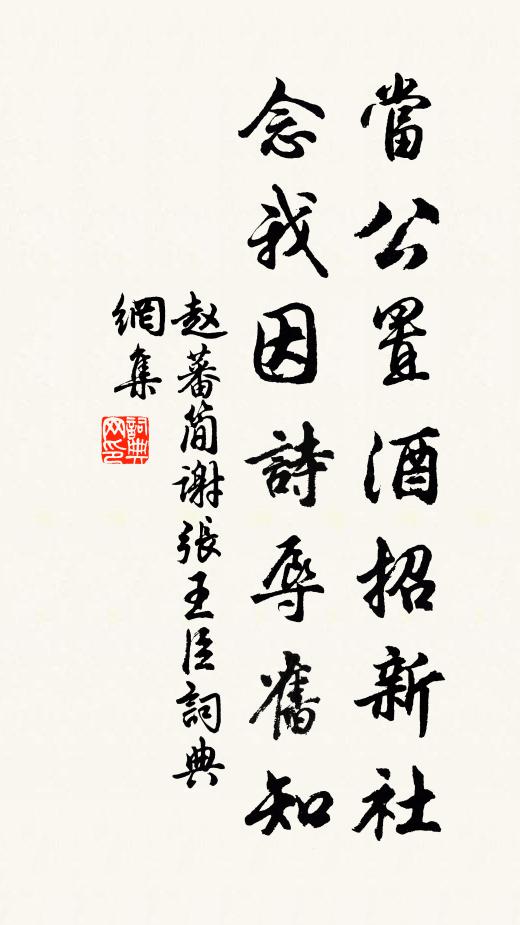 當公置酒招新社
念我因詩辱舊知
赵蕃简谢張王臣詞典
網集
詞典
网印